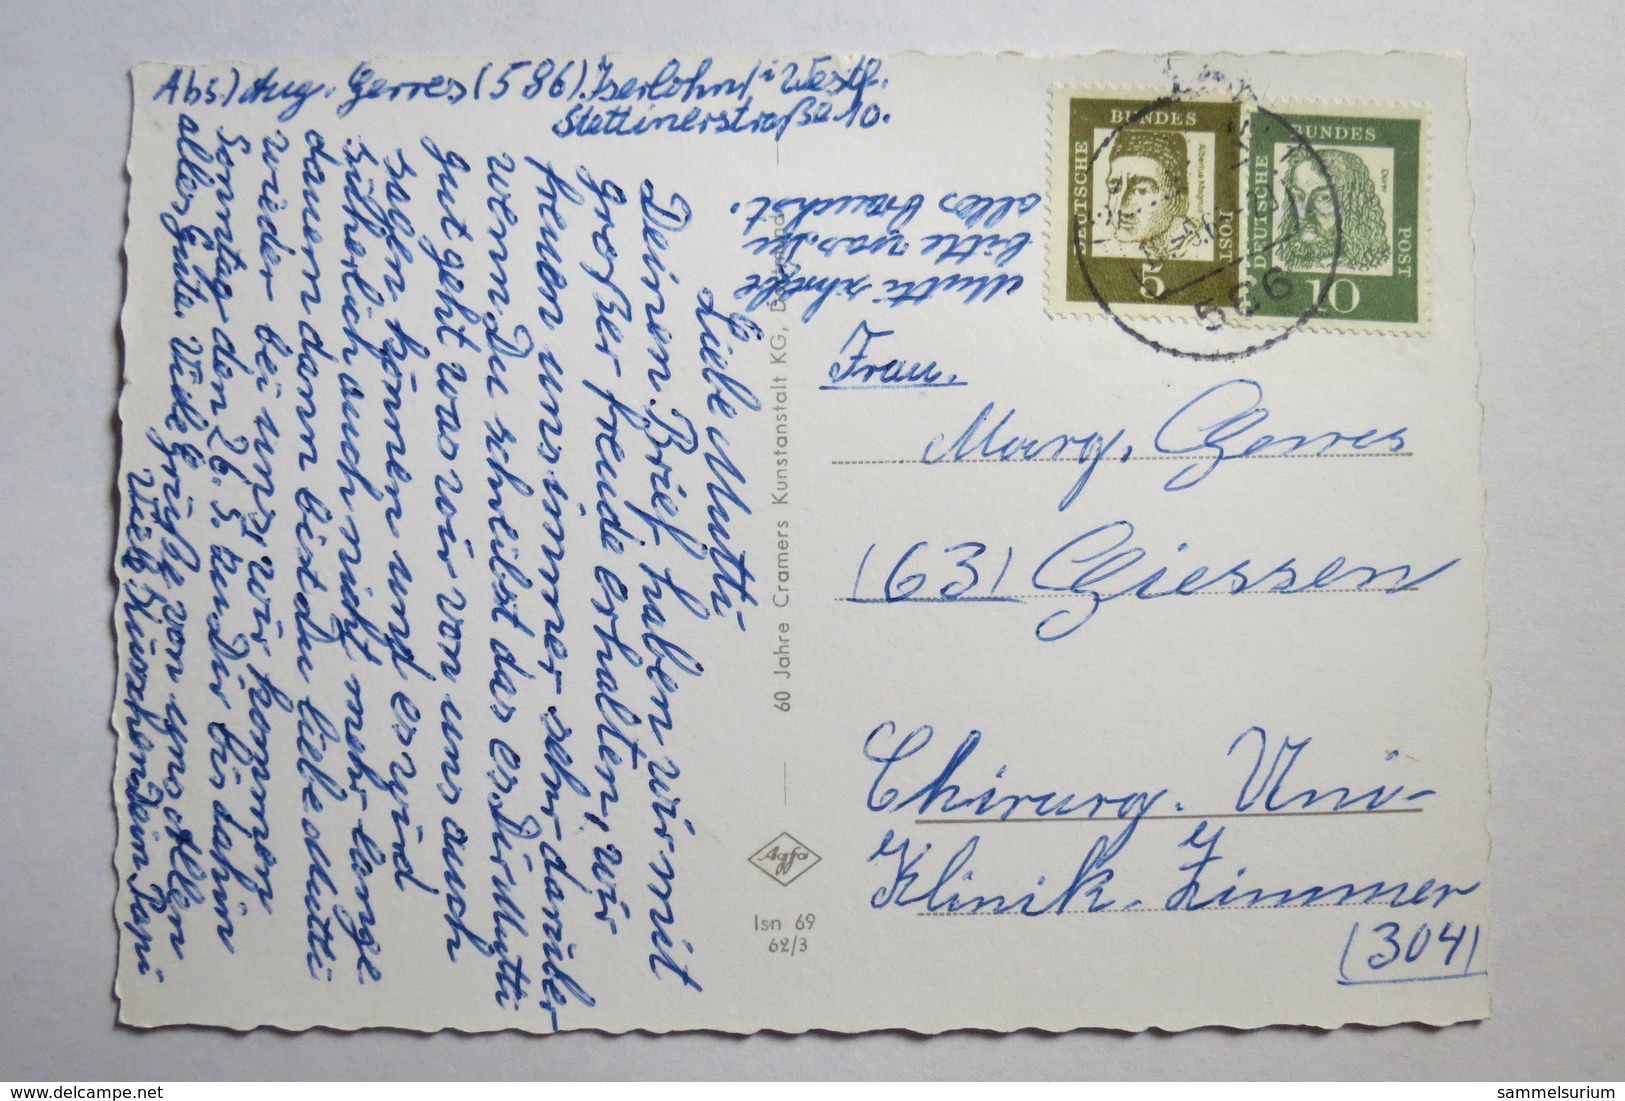 Abs.) Aug. Gerres (586) Iserlohn/i Westf.
Stettinerstraße 10.
Liebe Mutti
Deinen Brief haben wir mit
großer freude erhalten, wir
freuen uns immer sehr darüber
wenn Du schreibst das es Dir Mutti
gut geht was wir von uns auch
sagen können und es wird
sicherlich auch nicht mehr lange
dauern dann bist du liebe Mutti
wieder bei uns, wir kommen
Sonntag den 26. 5. zu Dir bis dahin
alles Gute. Viele Grüße von uns Allen
Viele Küsschen Dein Papi
Mutti schreibe
bitte was Du
alles brauchst.
60 Jahre Cramers Kunstanstalt KG, Dortmund
Agfa
Isn 69
62/3
DEUTSCHE
BUNDES
POST
Albertus Magnus
5
DEUTSCHE
BUNDES
POST
Dürer
10
586
Frau.
Marg. Gerres
(63) Giessen
Chirurg. Uni-
Klinik. Zimmer
(304)
sammelsurium
www.delcampe.net